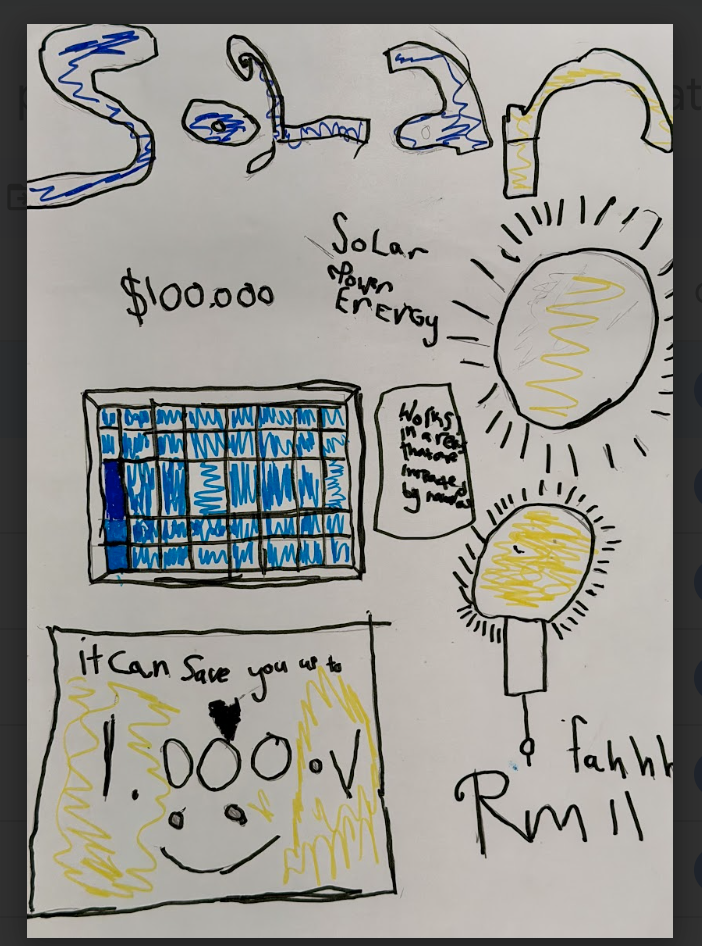 Solar
Solar
Power
ENERGY
$100.000
Works
in areas
that are
by
it Can Save you up to
1.000.V
fahhh
Rm 11